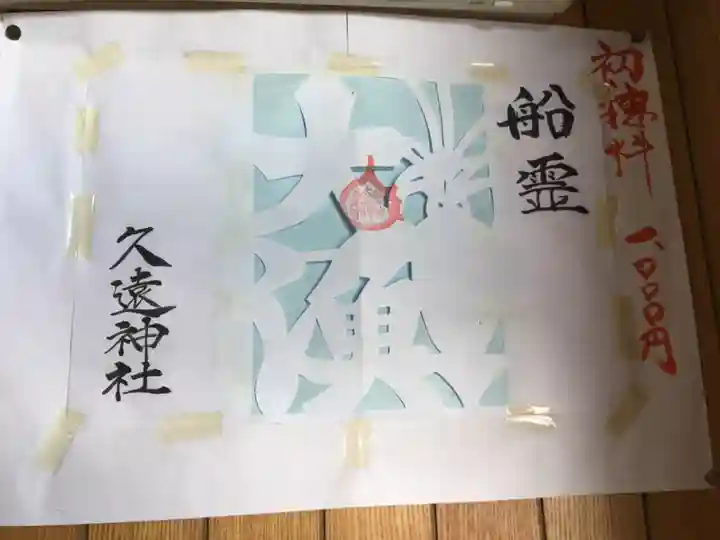 初穂料 一、〇〇〇円
船霊
大漁
久遠神社